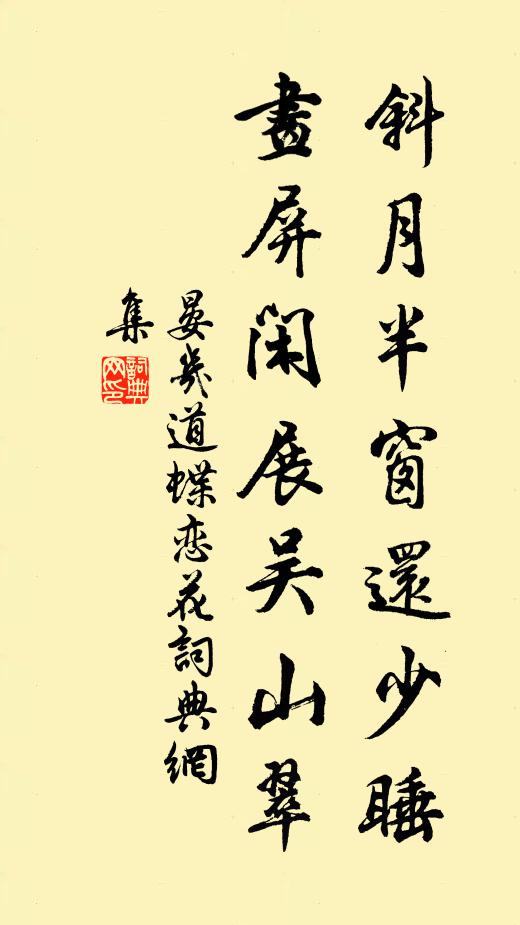 斜月半窗還少睡
畫屏閑展吴山翠
晏幾道蝶恋花詞典網
集
詞典
网印